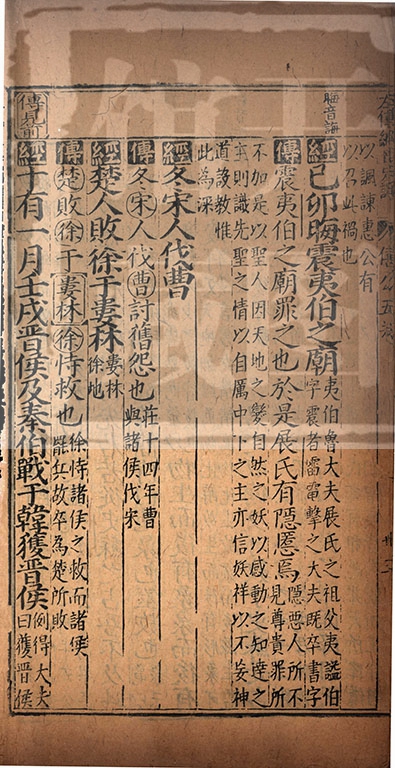 僖公五
以諷諫惠公有
以召此禍也
晦音誨
經己卯晦震夷伯之廟
夷伯魯大夫展氏之祖父夷謚伯
字震者雷電擊之大夫既卒書字
傳震夷伯之廟罪之也於是展氏有隱慝焉
隱惡人所不
見尊貴罪所
不加是以聖人因天地之變自然之妖以感動之知達之
主則識先聖之情以自厲中下之主亦信妖祥以不妄神
道設教惟
此為深
經冬宋人伐曹
傳冬宋人伐曹討舊怨也
莊十四年曹
與諸侯伐宋
經楚人敗徐于婁林
婁林
徐地
傳楚敗徐于婁林徐恃救也
徐恃諸侯之救而諸侯
罷兵故卒為楚所敗
傳見前
經十有一月壬戌晉侯及秦伯戰于韓獲晉侯
例得大夫
曰獲晉侯